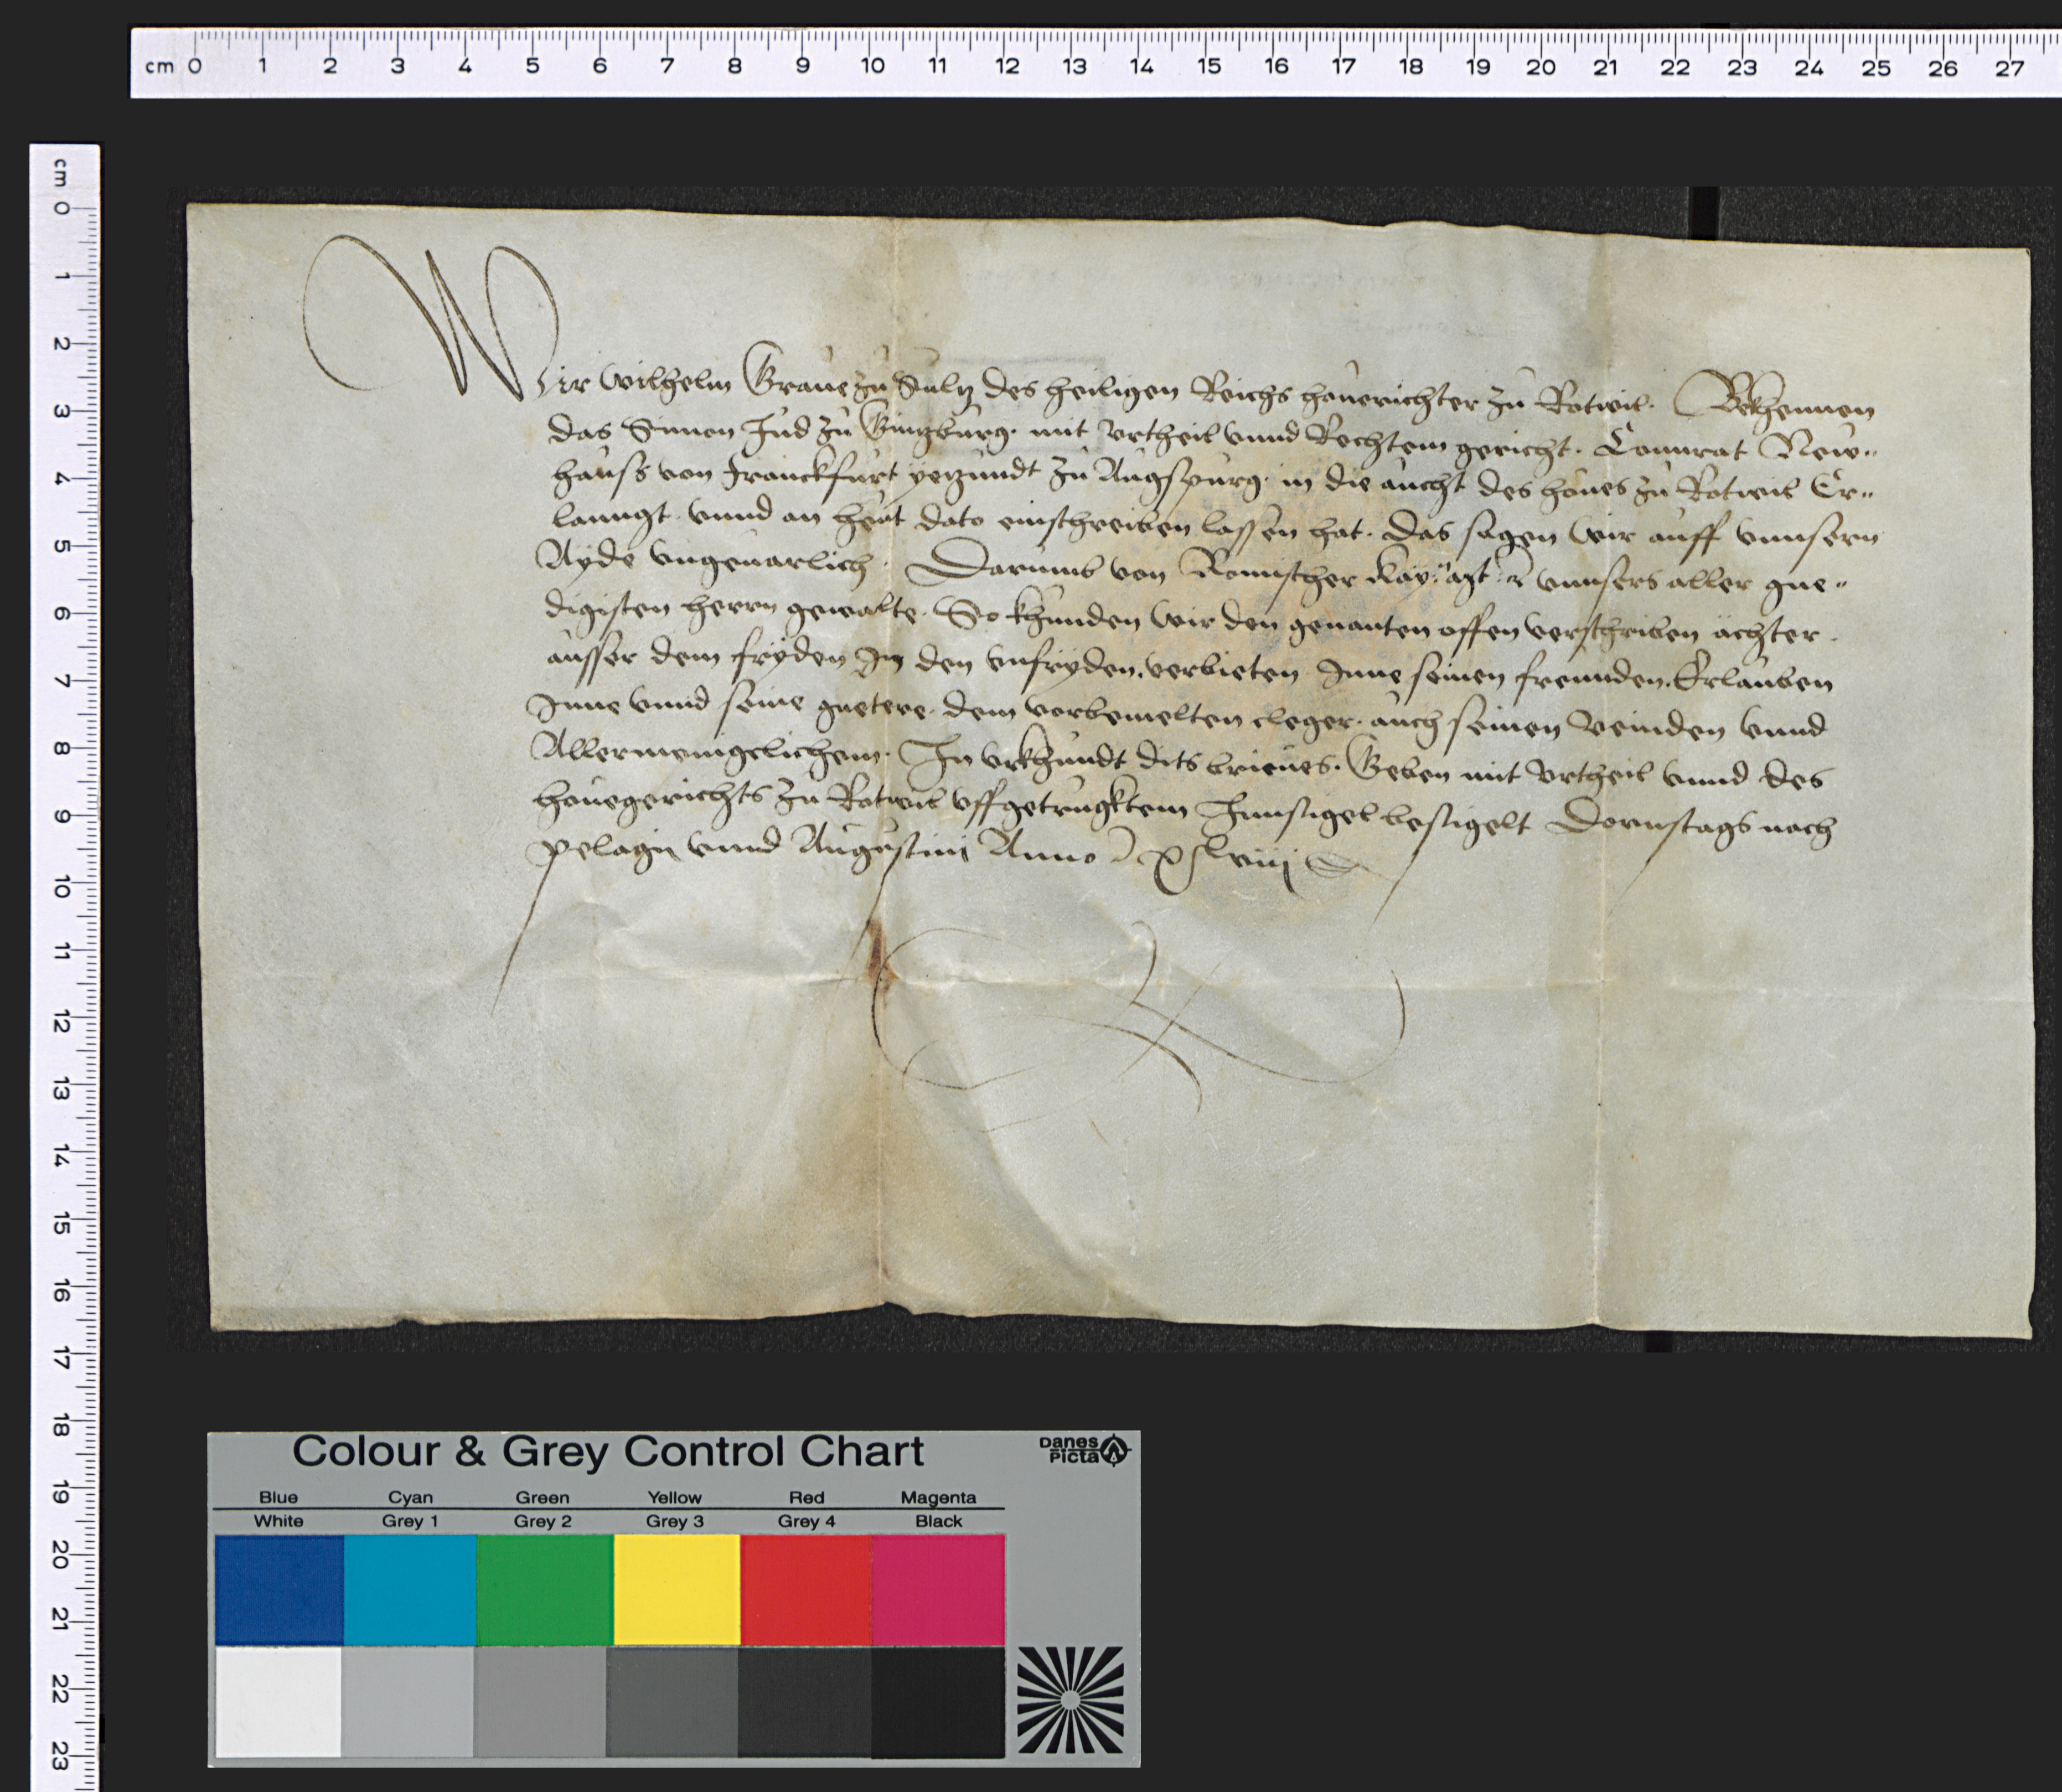 cm 0 1 2 3 4 5 6 7 8 9 10 11 12 13 14 15 16 17 18 19 20 21 22 23 24 25 26 27
cm 0 1 2 3 4 5 6 7 8 9 10 11 12 13 14 15 16 17 18 19 20 21 22 23
Wir Wilhelm Graue zu Sultz des heiligen Reichs houerichter zu Rotwil. Bekhennen
das Simon Jud zu Gintzburg. mit Vrtheil vnnd Rechtem gericht. Connrat New„
hauss von Franckfurt yetzundt zu Augspurg. in die aucht des houes zu Rotwil Er„
lanngt. vnnd an heut dato einschreiben lassen hat. Das sagen Wir auff vnnsern
Ayde vngeuarlich. Darumb von Romischer Kay: vnnsers aller gne„
digisten herrn gewalte. So khunden Wir den genanten offen verschriben ächter.
ausser dem fryden Jn den vnfryden. verbieten Jnne seinen freunden. Erlauben
Jnne vnnd seine guetere. dem vorbemelten cleger. auch seinen Veinden vnnd
Allermenigclichem. Jn vrkhundt dits brieues. Geben mit Vrtheil vnnd des
houegerichts zu Rotwil vffgetrugktem Jnnsigel besigelt Dornstags nach
pelagii vnnd Augustini Anno xlviij
Colour & Grey Control Chart
Danes Picta
Blue Cyan Green Yellow Red Magenta
White Grey 1 Grey 2 Grey 3 Grey 4 Black